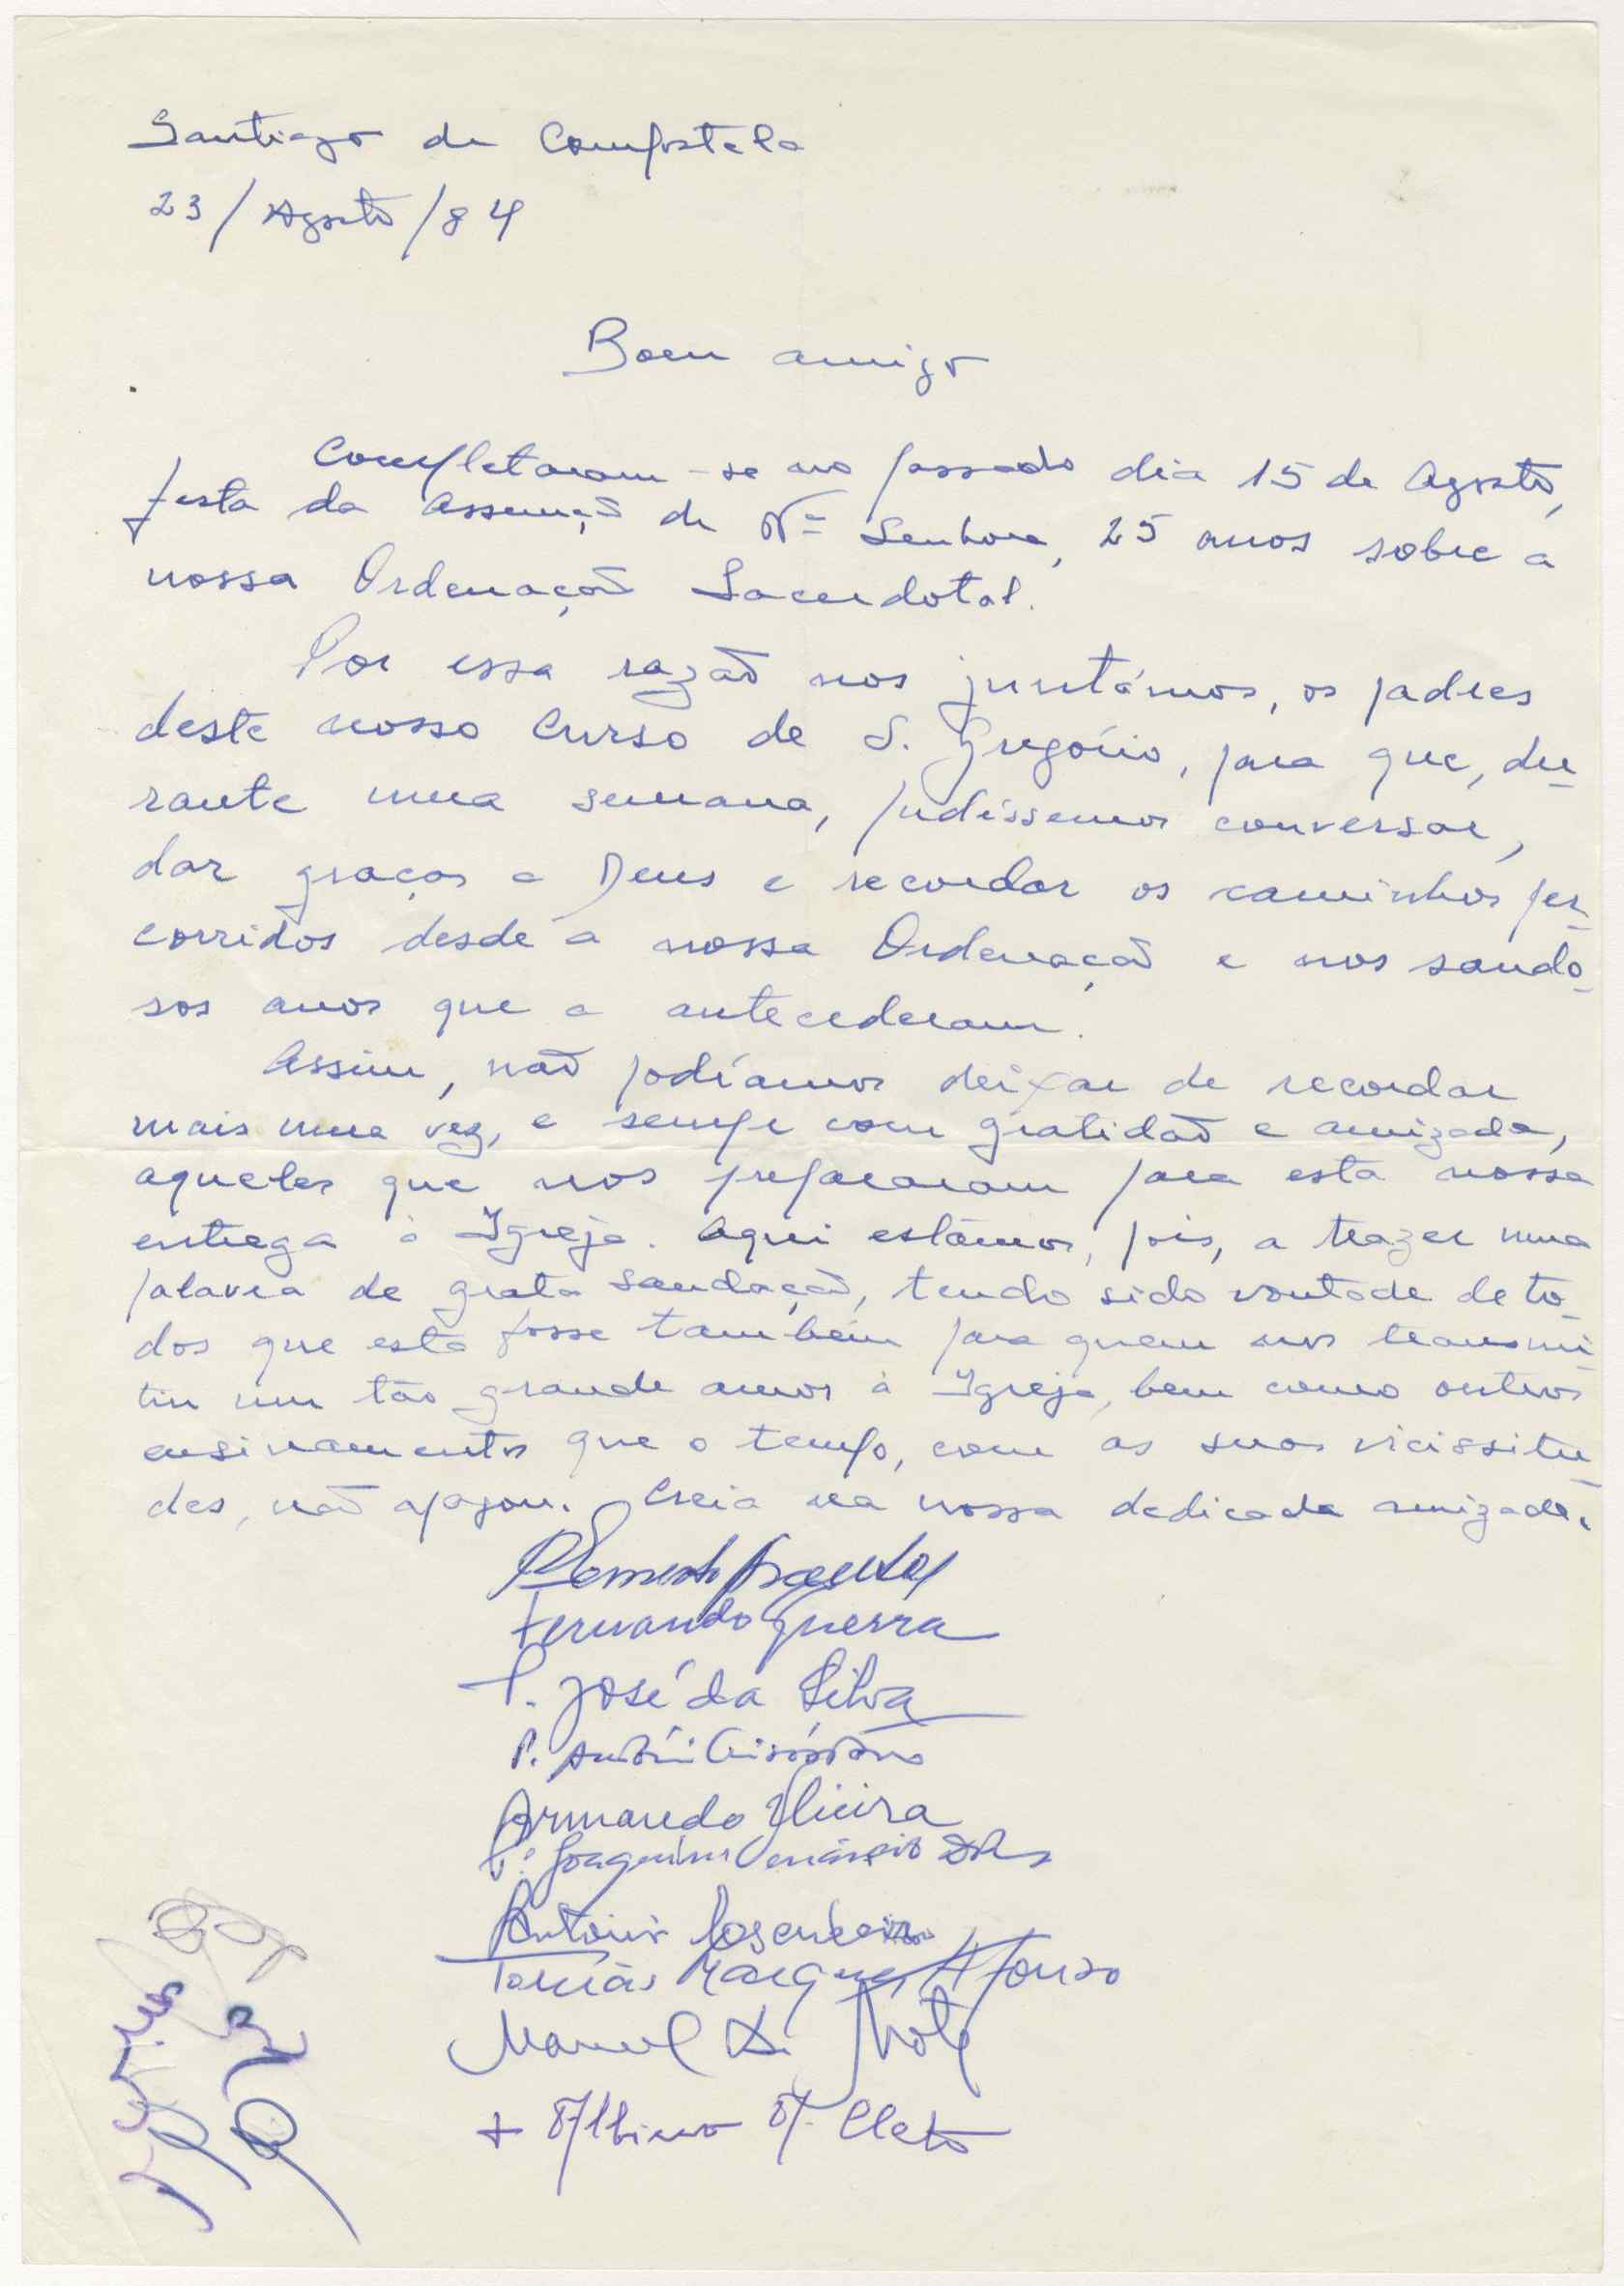 Santiago de Compostela
23/Agosto/84
Bom amigo
Completaram-se no passado dia 15 de Agosto,
festa da Assunção de Nª Senhora, 25 anos sobre a
nossa Ordenação Sacerdotal.
Por essa razão nos juntámos, os padres
deste nosso Curso de S. Gregório, para que, du-
rante uma semana, pudéssemos conversar,
dar graças a Deus e recordar os caminhos per-
corridos desde a nossa Ordenação e nos saudo-
sos anos que a antecederam.
Assim, não podíamos deixar de recordar
mais uma vez, e sempre com gratidão e amizade,
aqueles que nos prepararam para esta nossa
entrega à Igreja. Aqui estámos, pois, a trazer uma
palavra de grata saudação, tendo sido vontade de to-
dos que esta fosse também para quem nos transmi-
tiu um tão grande amor à Igreja, bem como outros
ensinamentos que o tempo, com as suas vicissitu-
des, não apagou. Creia na nossa dedicada amizade.
Fernando Guerra
P. José da Silva
P.
Armando
P.e Joaquim Venâncio
António
Tomás Marques Afonso
Manuel
+ Albino M. Cleto